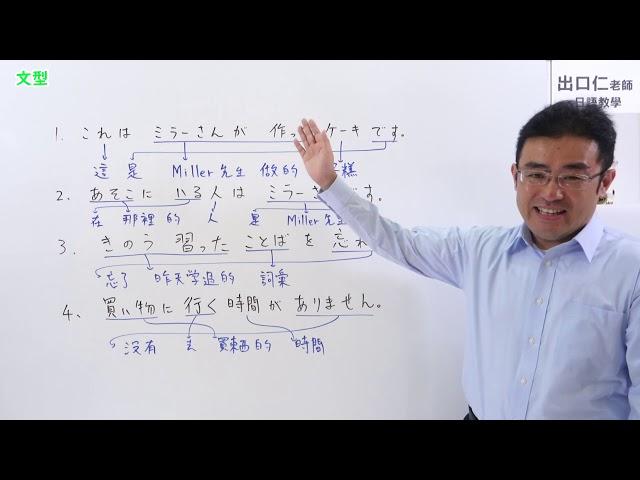 文型
出口仁老師
日語教學
1. これは ミラーさんが 作っ ケーキです。
這 是 Miller 先生 做的 糕
2. あそこに いる人は ミラーさ です。
在 那裡 的 人 是 Miller 先生
3. きのう 習った ことばを 忘れ
忘了 昨天学過的 詞彙
4. 買い物に 行く 時間が ありません。
沒有 去 買東西的 時間